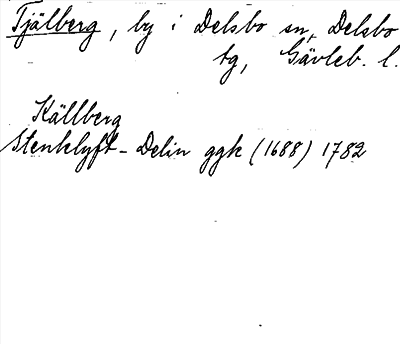 Tjälberg, by i Delsbo sn, Delsbo
tg, Gävleb. l.
Källberg
Stenklyft-Delin ggk (1688) 1782